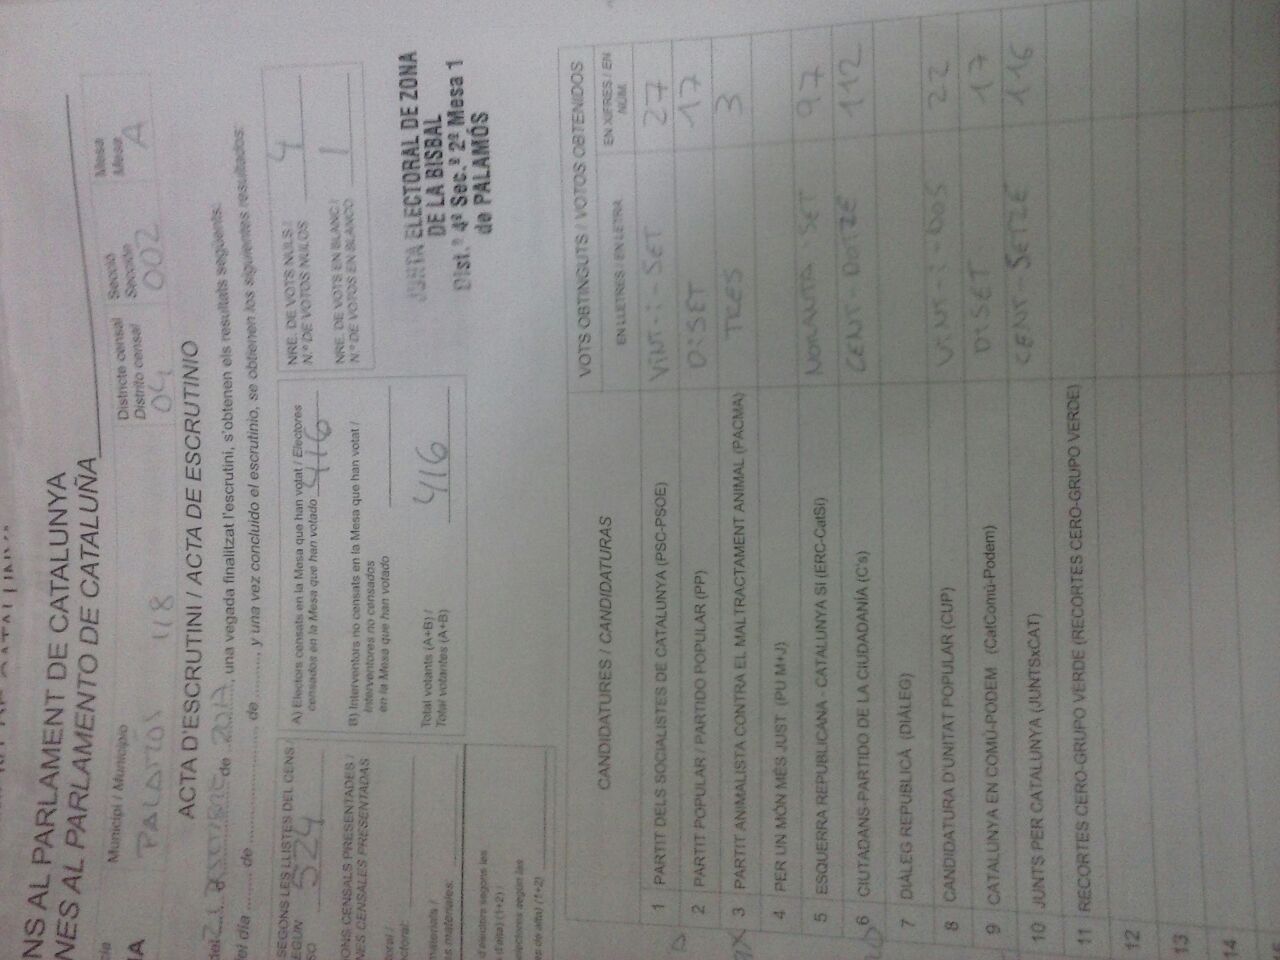 NS AL PARLAMENT DE CATALUNYA
NES AL PARLAMENTO DE CATALUÑA
Municipi / Municipio
PALAMÓS 118
Districte censal
Distrito censal
04
Secció
Sección
002
Mesa
Mesa
A
ACTA D'ESCRUTINI / ACTA DE ESCRUTINIO
del 21 de 2017, una vegada finalitzat l'escrutini, s'obtenen els resultats següents:
el día de de , y una vez concluido el escrutinio, se obtienen los siguientes resultados:
SEGONS LES LLISTES DEL CENS /
524
ONS CENSALS PRESENTADES /
NES CENSALES PRESENTADAS
A) Electors censats en la Mesa que han votat / Electores
censados en la Mesa que han votado 416
B) Interventors no censats en la Mesa que han votat /
Interventores no censados
en la Mesa que han votado
Total votants (A+B) /
Total votantes (A+B)
416
NRE. DE VOTS NULS /
N.º DE VOTOS NULOS
4
NRE. DE VOTS EN BLANC /
N.º DE VOTOS EN BLANCO
1
JUNTA ELECTORAL DE ZONA
DE LA BISBAL
Dist.º 4º Sec.ª 2ª Mesa 1
de PALAMÓS
CANDIDATURES / CANDIDATURAS
VOTS OBTINGUTS / VOTOS OBTENIDOS
EN LLETRES / EN LETRA
EN XIFRES / EN
NÚM.
1 PARTIT DELS SOCIALISTES DE CATALUNYA (PSC-PSOE) VINT-I-SET 27
2 PARTIT POPULAR / PARTIDO POPULAR (PP) DISET 17
3 PARTIT ANIMALISTA CONTRA EL MALTRACTAMENT ANIMAL (PACMA) TRES 3
4 PER UN MÓN MÉS JUST (PU M+J)
5 ESQUERRA REPUBLICANA - CATALUNYA SÍ (ERC-CatSí) NORANTA SET 97
6 CIUTADANS-PARTIDO DE LA CIUDADANÍA (C's) CENT-DOTZE 112
7 DIÀLEG REPUBLICÀ (DIÀLEG)
8 CANDIDATURA D'UNITAT POPULAR (CUP) VINT-I-DOS 22
9 CATALUNYA EN COMÚ-PODEM (CatComú-Podem) DISET 17
10 JUNTS PER CATALUNYA (JUNTSxCAT) CENT-SETZE 116
11 RECORTES CERO-GRUPO VERDE (RECORTES CERO-GRUPO VERDE)
12
13
14